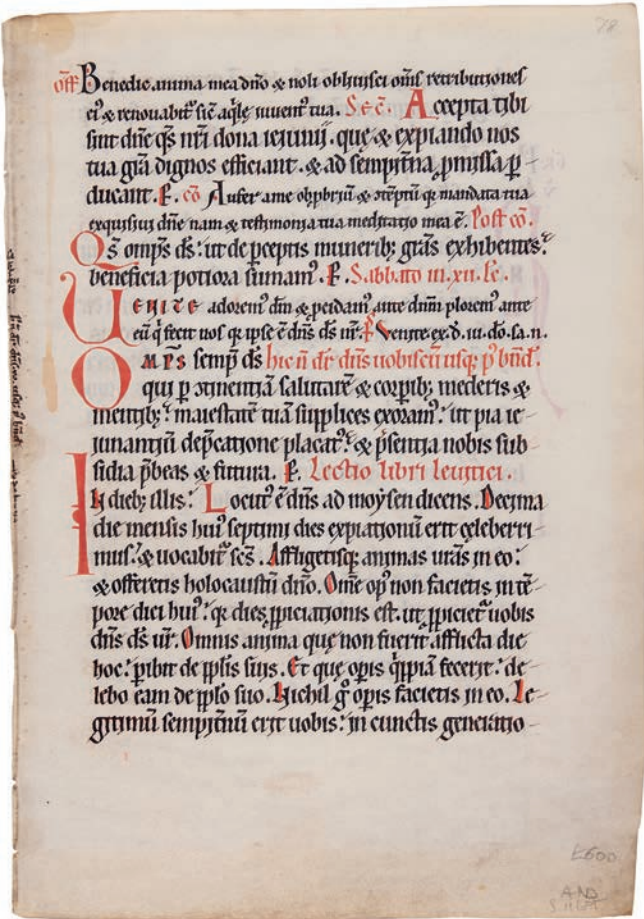 78
off̄ Benedic anima mea dño & noli obliuisci om̄s retributiones
ei⁹ & renouabit̃ sic̃ aq̇le iuuent⁹ tua. Sec̄. Accepta tibi
sint dñe q̄s nr̄i dona ieiunij. que & expiando nos
tua grā dignos efficiant. & ad sempit̃na ꝓmissa ꝑ-
ducant. ꝑ. co Aufer a me obp̃briū & ɔtēptū q̄ mandata tua
exquisiui dñe nam & testimonia tua meditatio mea ē. Post cō.
Q̄s omp̄s ds̄: ut de ꝑceptis munerib; grās exhibentes:
beneficia potiora sumam⁹. ꝑ. Sabbato in .xii. le.
Uenite adorem⁹ dm̄ & ꝓcidam⁹ ante dnm̄ plorem⁹ ante
eū q̇ fecit nos q̄ ipse ē dn̄s ds̄ nr̄. ꝑ Venite ex. d. iii. do. sa. n.
Omp̄s semp̄ ds̄ hic n̄ dr̄ dn̄s uobiscū usq; p⁹ bn̄d'.
qui ꝑ ɔtinentiā salutarē & corꝑib; mederis &
mentib;: maiestatē tuā supplices exoram⁹: ut pia ie-
iunantiū dep̃catione placat⁹: & p̃sentia nobis sub-
sidia p̃beas & futura. ꝑ. Lectio libri leuitici.
In dieb; illis: Locut⁹ ē dn̄s ad moysen dicens. Decima
die mensis hui⁹ septimi dies expiationū erit celeberri-
mus: & uocabit̃ scs̄. Affligetisq; animas urās in eo:
& offeretis holocaustū dño. Om̄e op⁹ non facietis in tē-
pore diei hui⁹: q̄ dies ꝓpiciationis est. ut ꝓpiciet̃ uobis
dn̄s ds̄ ur̄. Omnis anima que non fuerit afflicta die
hoc: ꝑibit de ppl̄is suis. Et que oꝑis q̇ppiā fecerit: de-
lebo eam de ppl̄o suo. Nichil g̊ oꝑis facietis in eo. Le-
gitimū sempit̃nū erit uobis: in cunctis generatio-
£600